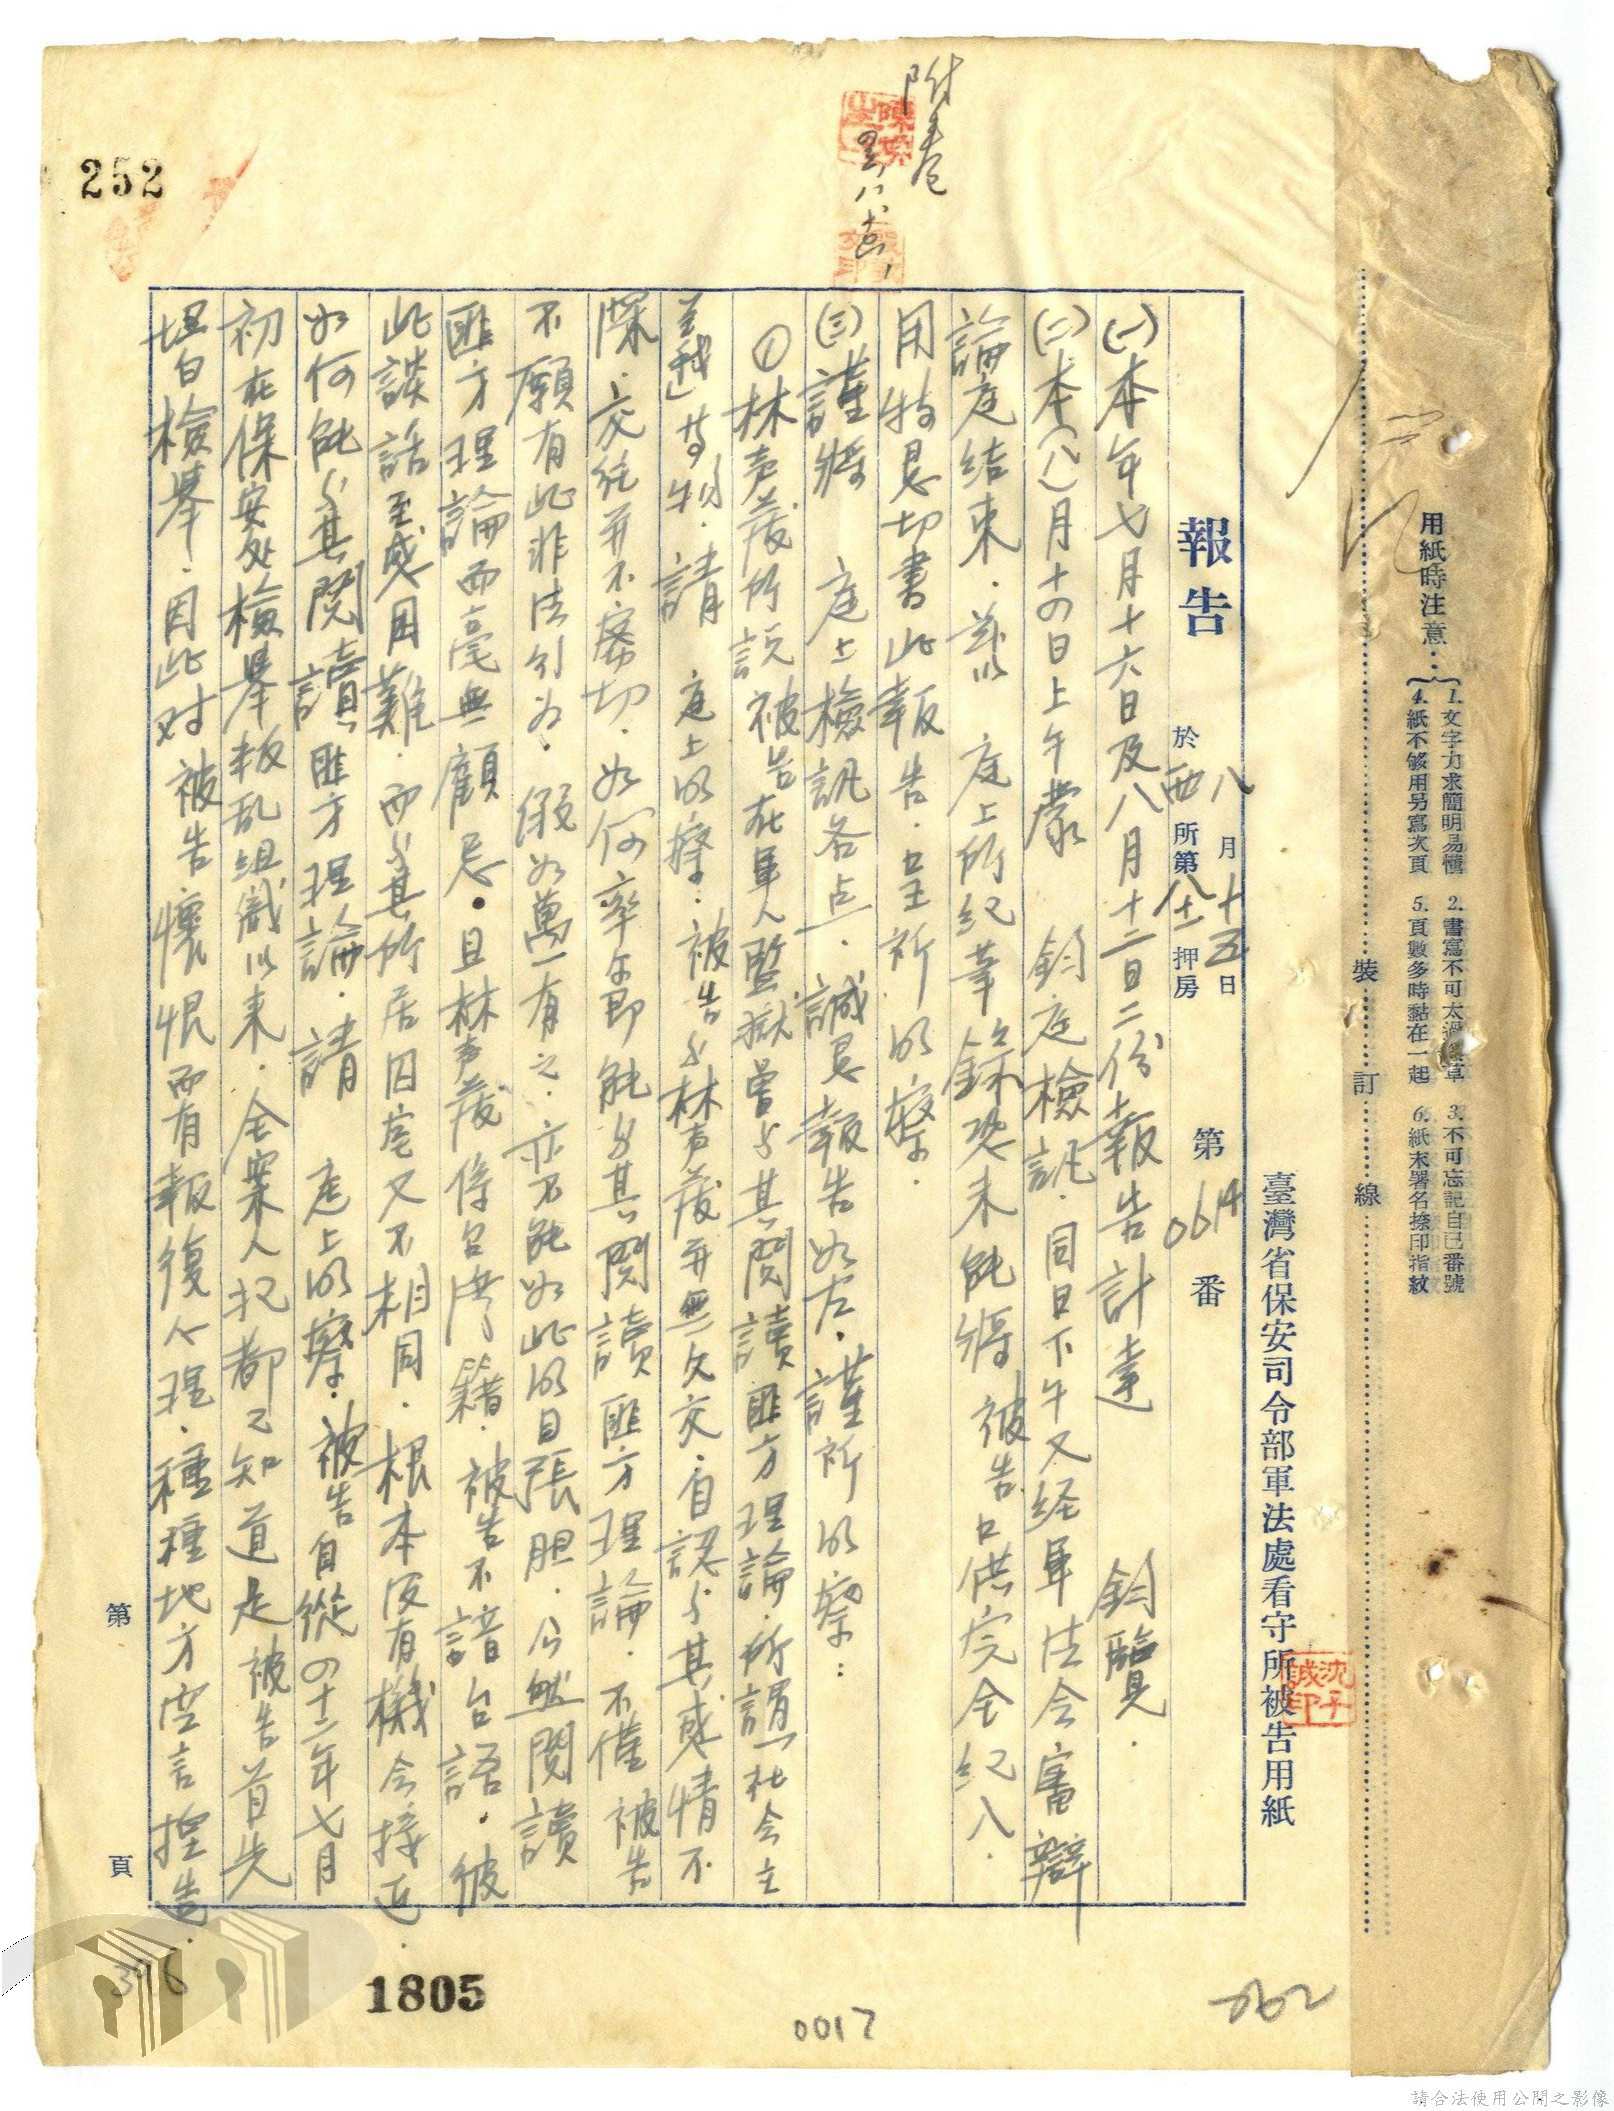 用紙時注意：
1. 文字力求簡明易懂 2. 書寫不可太過潦草 3. 不可忘記自己番號
4. 紙不够用另寫次頁 5. 頁數多時黏在一起 6. 紙末署名捺印指紋
裝 訂 線
臺灣省保安司令部軍法處看守所被告用紙
報告
八月十五日
於西所第八押房
第 番
(一)本年七月十六日及八月十二日二份報告計達 鈞覽.
(二)本(八)月十四日上午蒙 鈞庭檢訊.同日下午又經軍法会審辯
論庭結束.茲以 庭上所紀筆錄恐未能將被告口供完全紀入.
用特懇切書此報告.呈祈明察.
(三)謹將 庭上檢訊各点.誠懇報告如左.謹祈明察:
①林声發所説被告在軍人監獄曾与其閱讀匪方理論.所謂「社会主
至我」等物.請 庭上明察:被告与林声發並無欠交.自認与其感情不
深.交能並不密切.如何率尔即能与其閱讀匪方理論.不僅被告
不願有此非法行为.假如萬一有之.亦不能如此明目張胆.公然閱讀
匪方理論而毫無顧忌.且林声發係台灣籍.被告不諳台語.彼
此談話至感困難.而与其所居囚室又不相同.根本沒有機会接近.
如何能与其閱讀匪方理論.請 庭上明察.被告自從四十二年七月
初在保安处檢舉叛乱組織以来.全案人犯都已知道是被告首先
坦白檢舉.因此对被告懷恨而有報復心理.種種地方空言揑造.
附卷
陳
沈子誠印
252
第 頁
1805
0017
062
請合法使用公開之影像